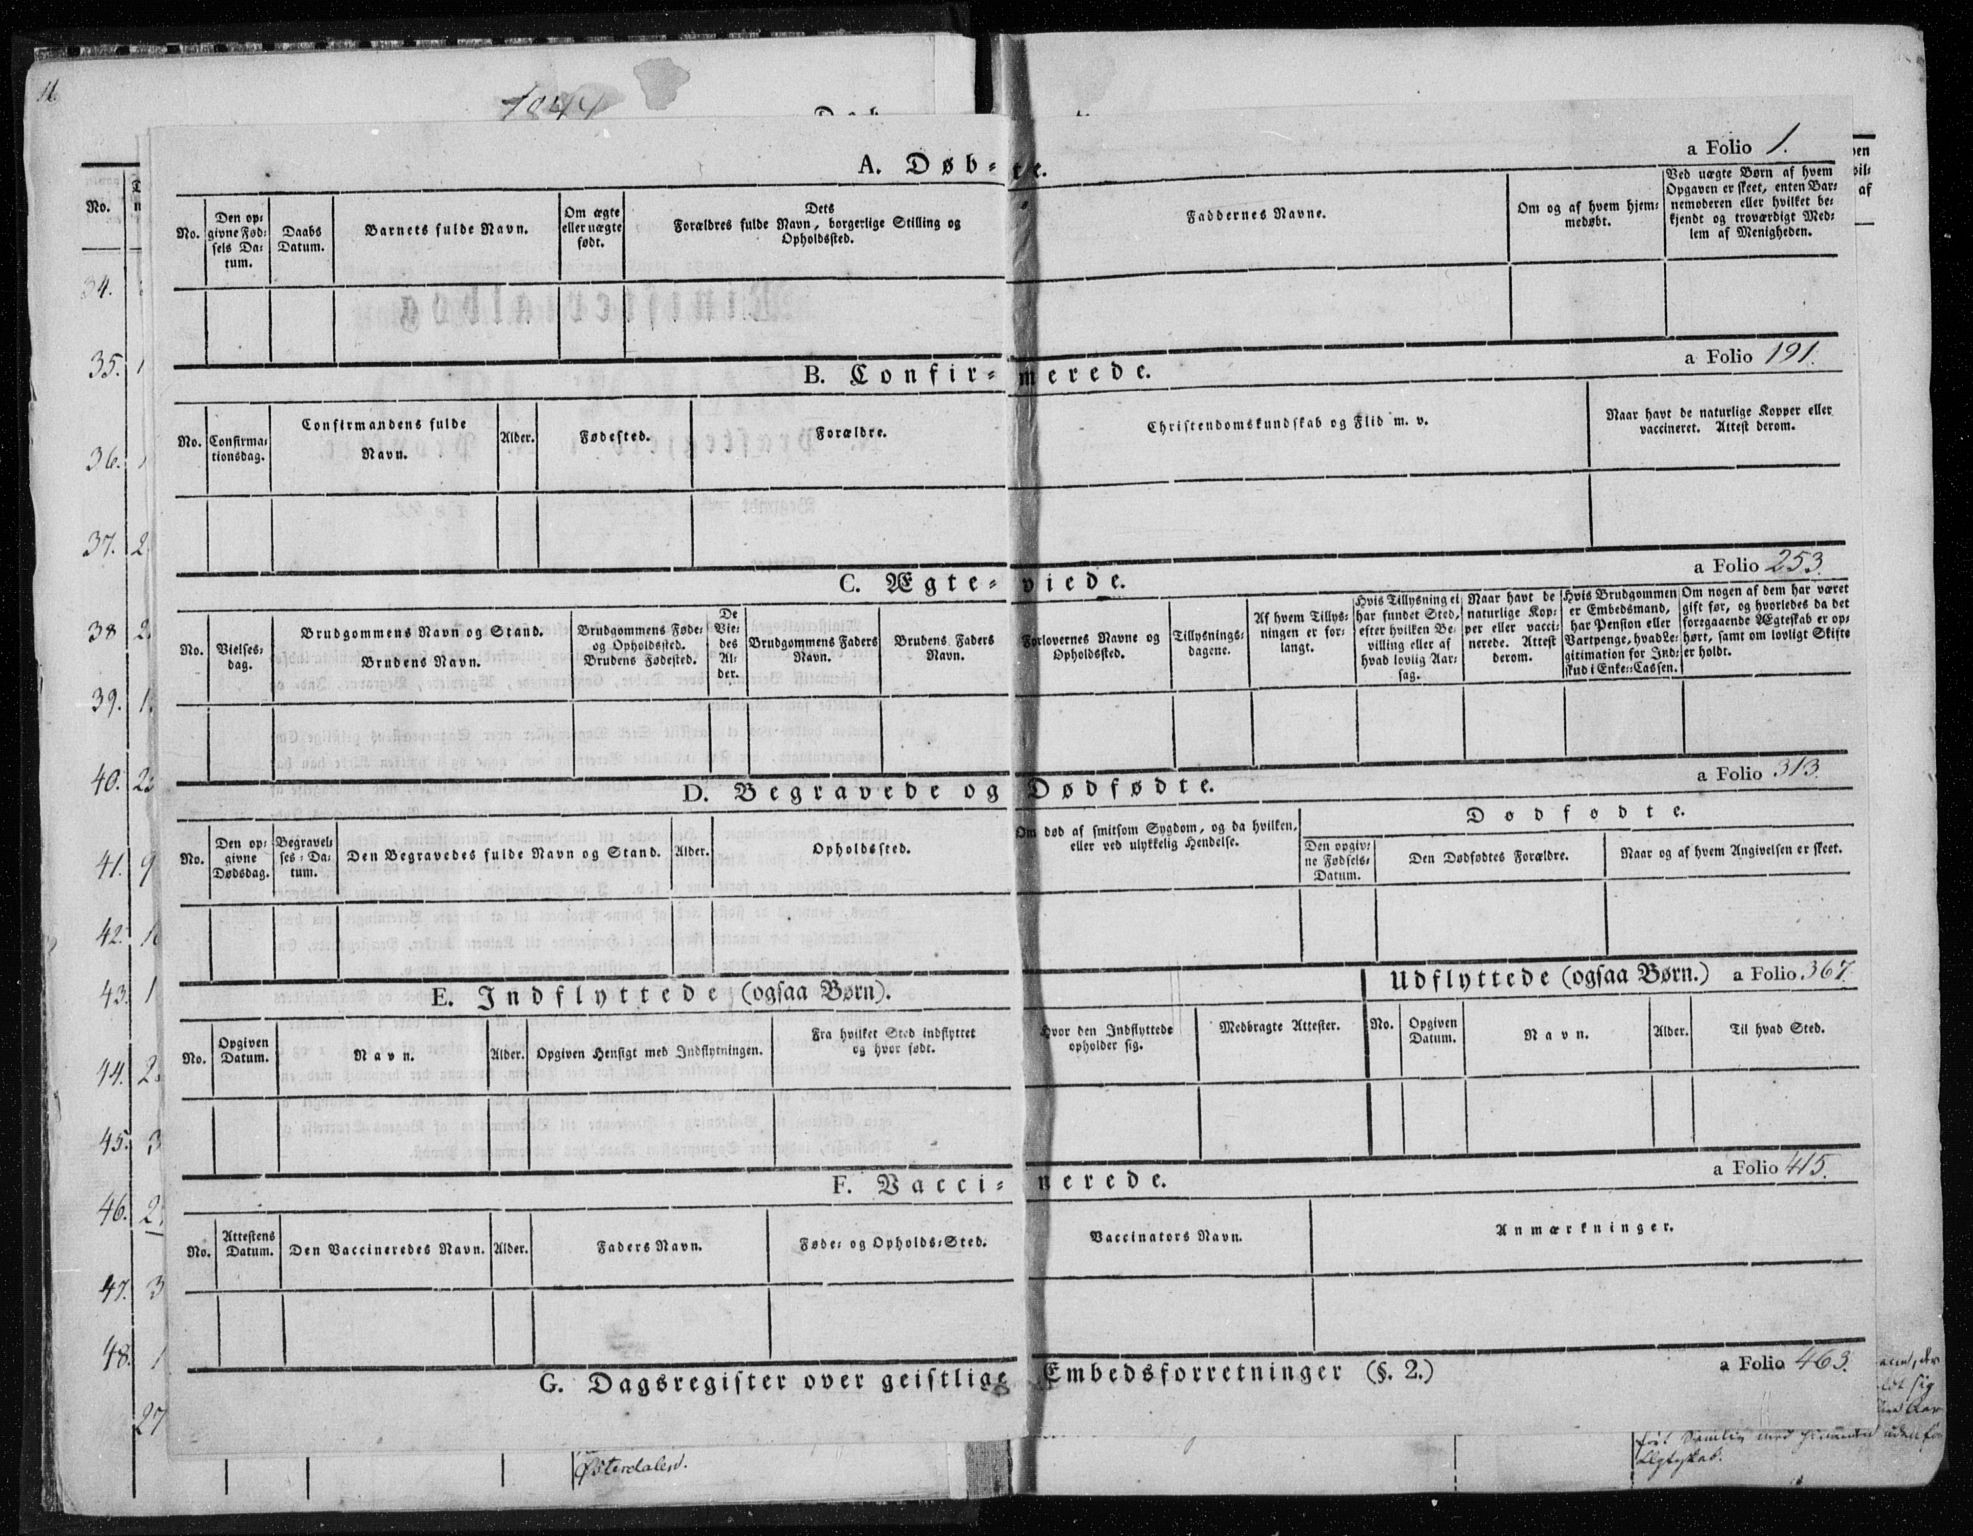 11.
1844
A. Døb-te.
a Folio 1.
No.
Den op-
givne Fød-
sels Da-
tum.
Daabs
Datum.
Barnets fulde Navn.
Om ægte
eller uægte
født.
Dets
Forældres fulde Navn, borgerlige Stilling og
Opholdssted.
Faddernes Navne.
Om og af hvem hjem-
medøbt.
Ved uægte Børn af hvem
Opgaven er skeet, enten Bar-
nemoderen eller hvilket be-
kjendt og troværdigt Med-
lem af Menigheden.
a Folio 191.
B. Confir-merede.
No.
Confirma-
tionsdag.
Confirmandens fulde
Navn.
Alder.
Fødested.
Forældre.
Christendomskundskab og Flid m. v.
Naar havt de naturlige Kopper eller
vaccineret. Attest derom.
a Folio 253.
C. Ægte-viede.
No.
Vielses-
dag.
Brudgommens Navn og Stand.
Brudens Navn.
Brudgommens Føde-
og Opholdssted.
Brudens Fødested.
De
Vie-
des
Al-
der.
Brudgommens Faders
Navn.
Brudens Faders
Navn.
Forlovernes Navne og
Opholdssted.
Tillysnings-
dagene.
Af hvem Tillys-
ningen er for-
langt.
Hvis Tillysning ei
har fundet Sted,
efter hvilken Be-
villing eller af
hvad lovlig Aar-
sag.
Naar havt de
naturlige Kop-
per eller vacci-
nerede. Attest
derom.
Hvis Brudgommen
er Embedsmand,
har Pension eller
Vartpenge, hvad Le-
gitimation for Ind-
skud i Enke-Cassen.
Om nogen af dem har været
gift før, og hvorledes da det
foregaaende Ægteskab er op-
hørt, samt om lovligt Skifte
er holdt.
a Folio 313.
D. Begravede og Dødfødte.
No.
Den op-
givne
Dødsdag.
Begravel-
ses-Da-
tum.
Den Begravedes fulde Navn og Stand.
Alder.
Opholdssted.
Om død af smitsom Sygdom, og da hvilken,
eller ved ulykkelig Hendelse.
Dødfødte.
Den opgiv-
ne Fødsels-
Datum.
Den Dødfødtes Forældre.
Naar og af hvem Angivelsen er skeet.
E. Indflyttede (ogsaa Børn).
Udflyttede (ogsaa Børn.) a Folio 367.
No.
Opgiven
Datum.
Navn.
Alder.
Opgiven Hensigt med Indflytningen.
Fra hvilket Sted indflyttet
og hvor født.
Hvor den Indflyttede
opholder sig.
Medbragte Attester.
No.
Opgiven
Datum.
Navn.
Alder.
Til hvad Sted.
a Folio 415.
F. Vacci-nerede.
No.
Attestens
Datum.
Den Vaccineredes Navn.
Alder.
Faders Navn.
Føde- og Opholds-Sted.
Vaccinators Navn.
Anmærkninger.
a Folio 463.
G. Dagsregister over geistlige Embedsforretninger (§. 2.)
No.
34.
35.
36.
37. 2.
38 2.
39. 1.
40.
41. 9
42.
43. 1
44. 2.
45. 3
46. 2.
47. 3
48. 1
27
Østerdalen.